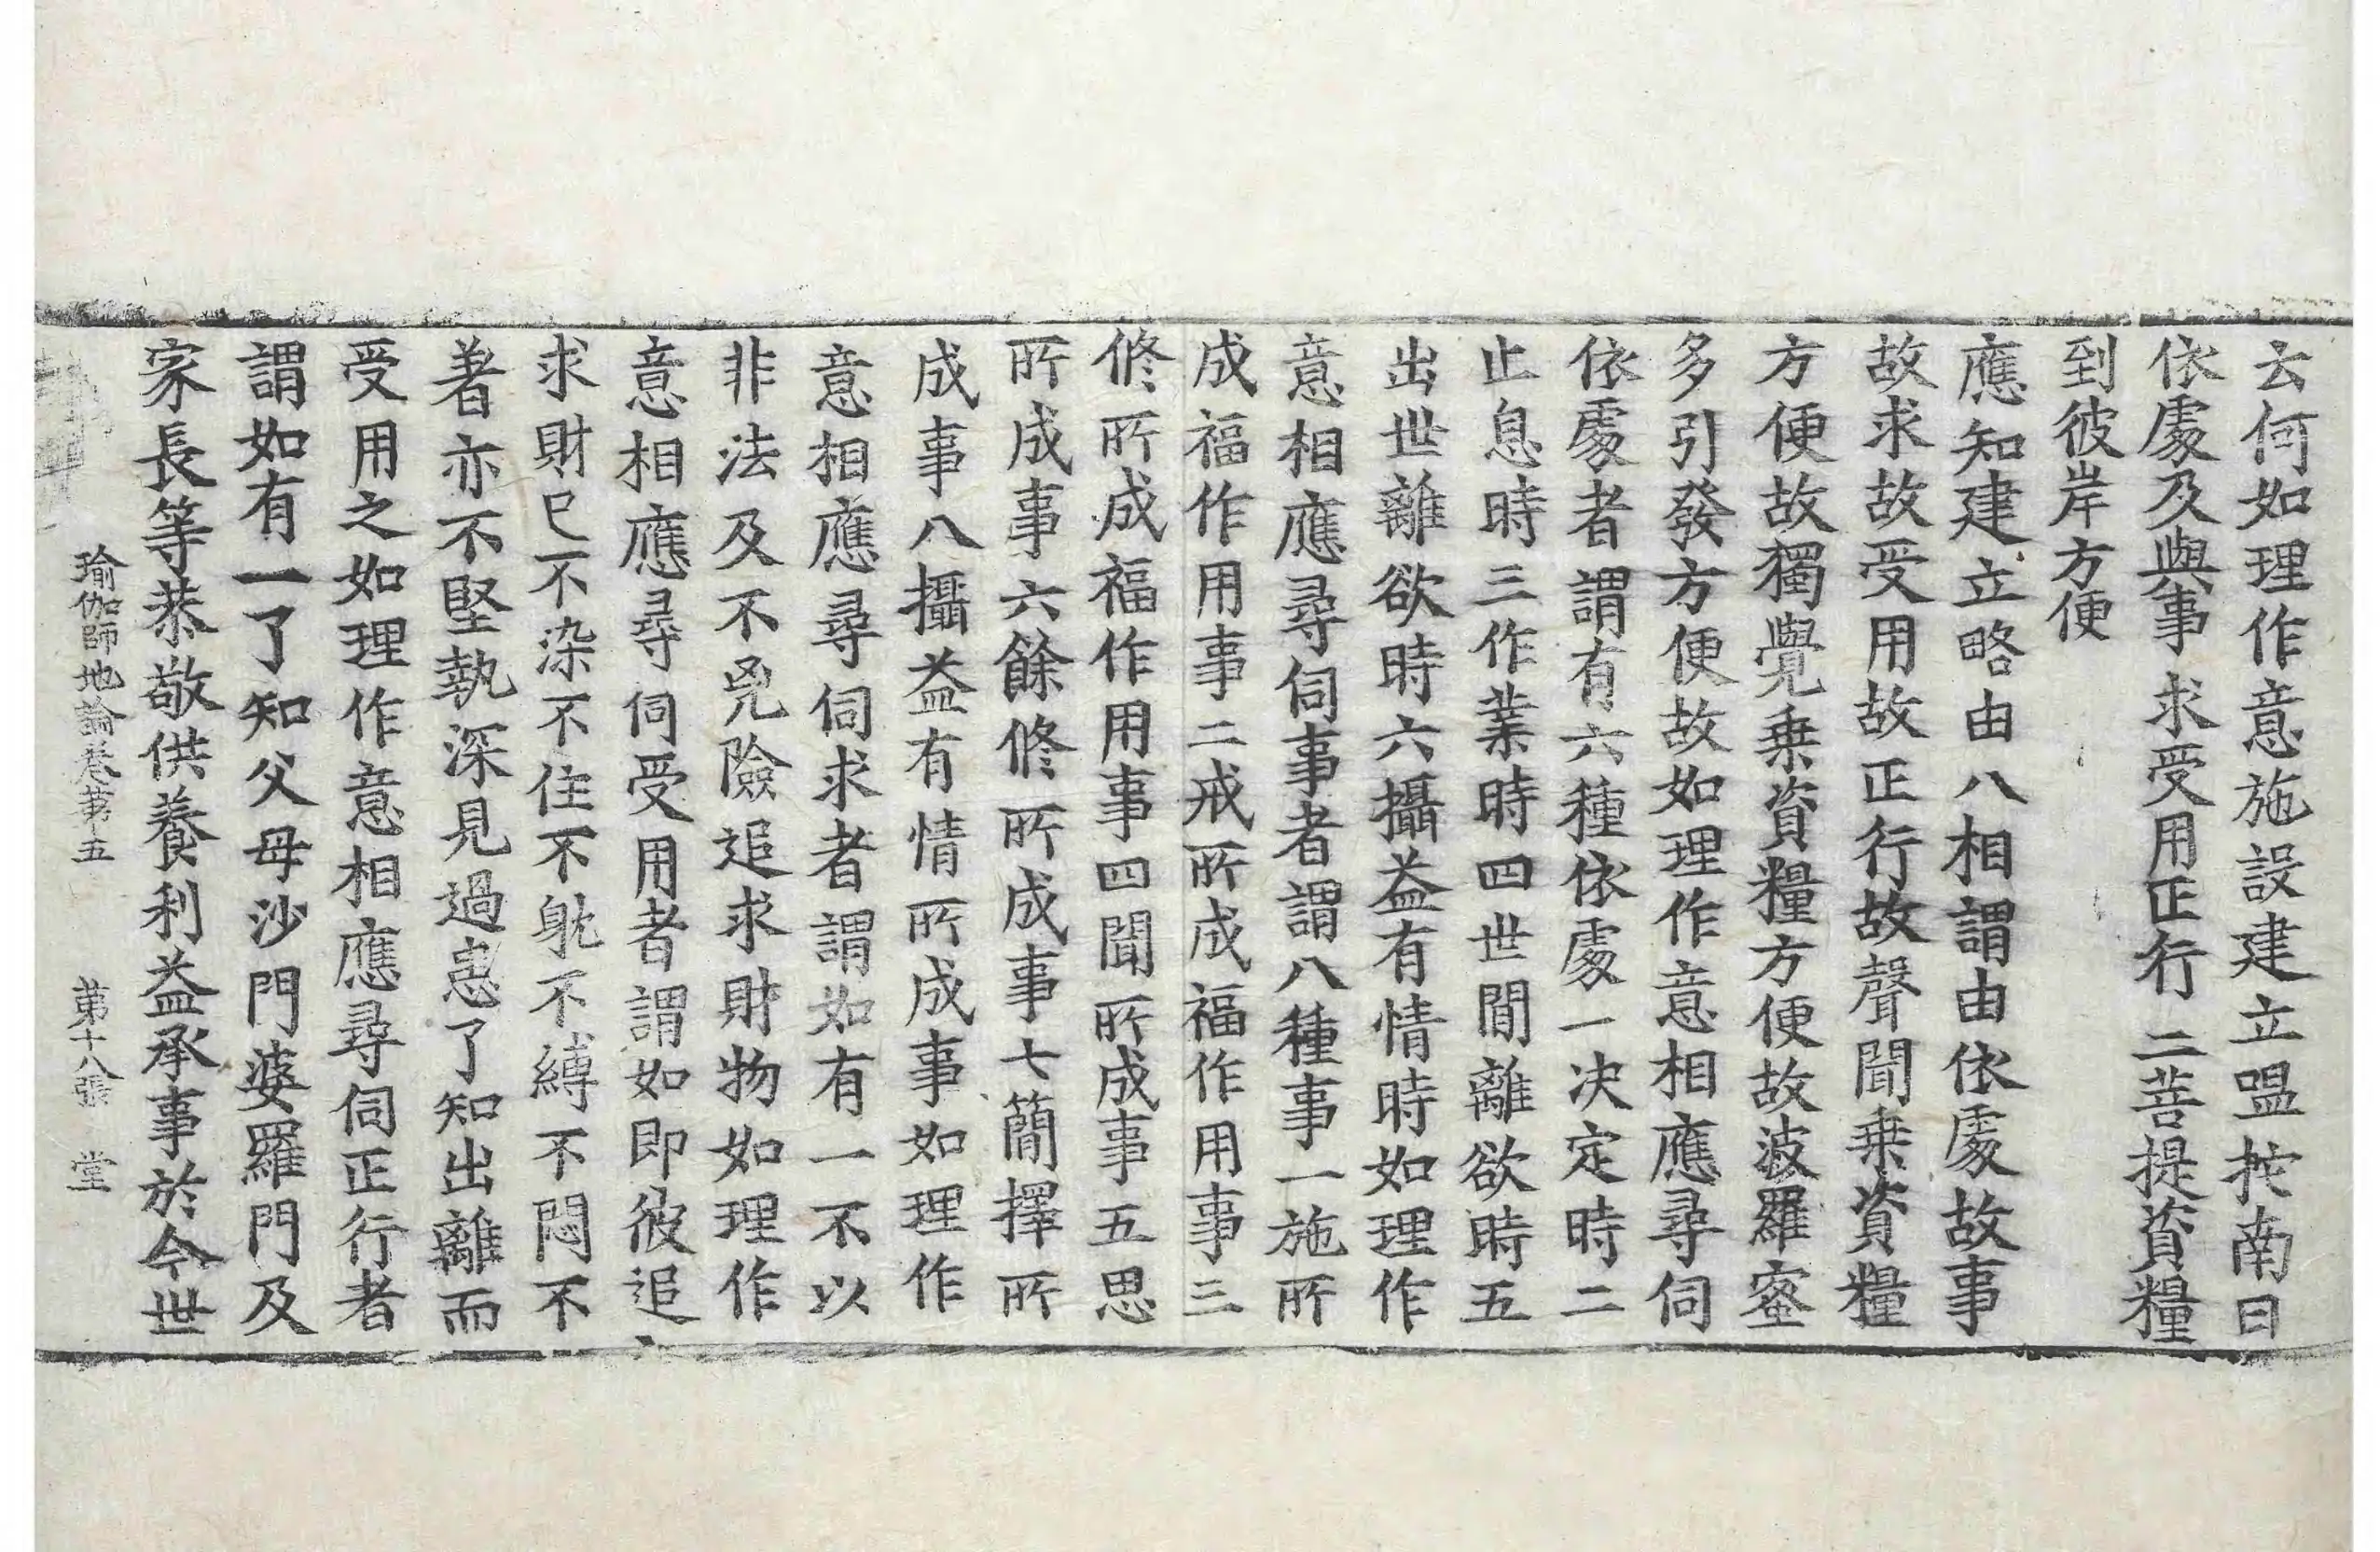 云何如理作意施設建立嗢拕南曰
依處及與事 求受用正行 二菩提資糧
到彼岸方便
應知建立略由八相謂由依處故事
故求故受用故正行故聲聞乗資糧
方便故獨覺乗資糧方便故波羅蜜
多引發方便故如理作意相應尋伺
依處者謂有六種依處一决定時二
止息時三作業時四世間離欲時五
出世離欲時六攝益有情時如理作
意相應尋伺事者謂八種事一施所
成福作用事二戒所成福作用事三
修所成福作用事四聞所成事五思
所成事六餘修所成事七簡擇所
成事八攝益有情所成事如理作
意相應尋伺求者謂如有一不以
非法及不兇險追求財物如理作
意相應尋伺受用者謂如即彼追
求財已不染不住不躭不縛不悶不
著亦不堅執深見過患了知出離而
受用之如理作意相應尋伺正行者
謂如有一了知父母沙門婆羅門及
家長等恭敬供養利益承事於今世
瑜伽師地論卷第五 第十八張 堂